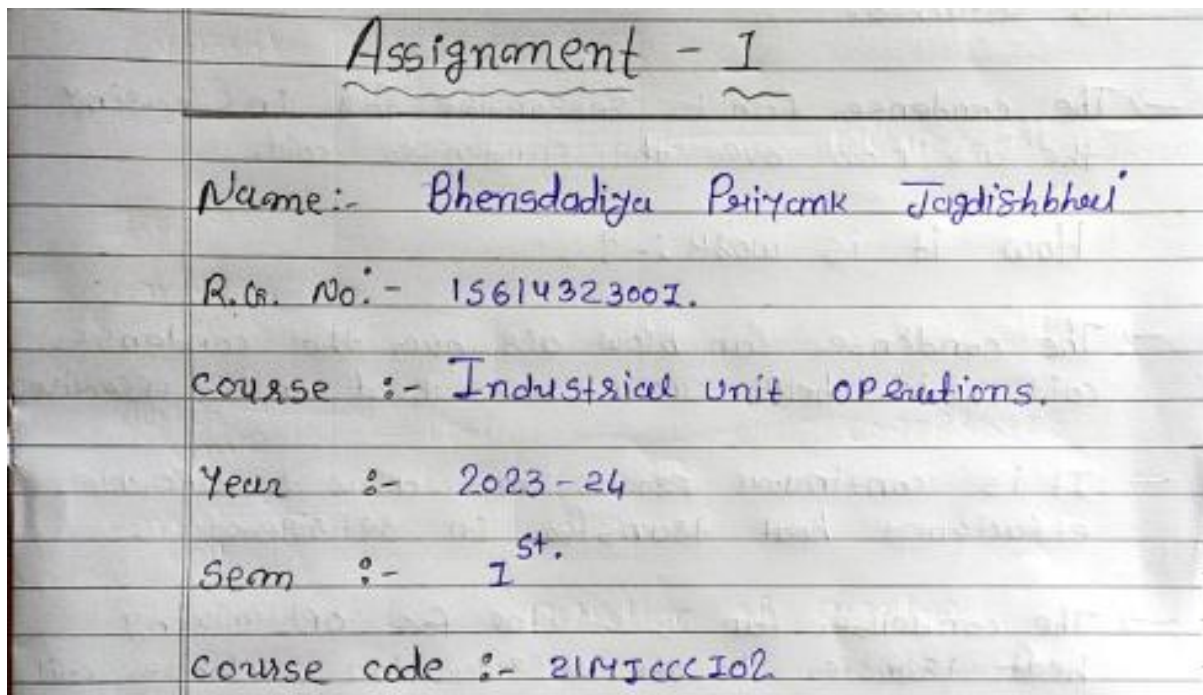 Assignment - 1
Name:- Bhensdadiya Priyank Jagdishbhai
R.G. No:- 15614323001.
Course :- Industrial unit operations.
Year :- 2023-24
Sem :- 1st.
Course code :- 21MICCC102